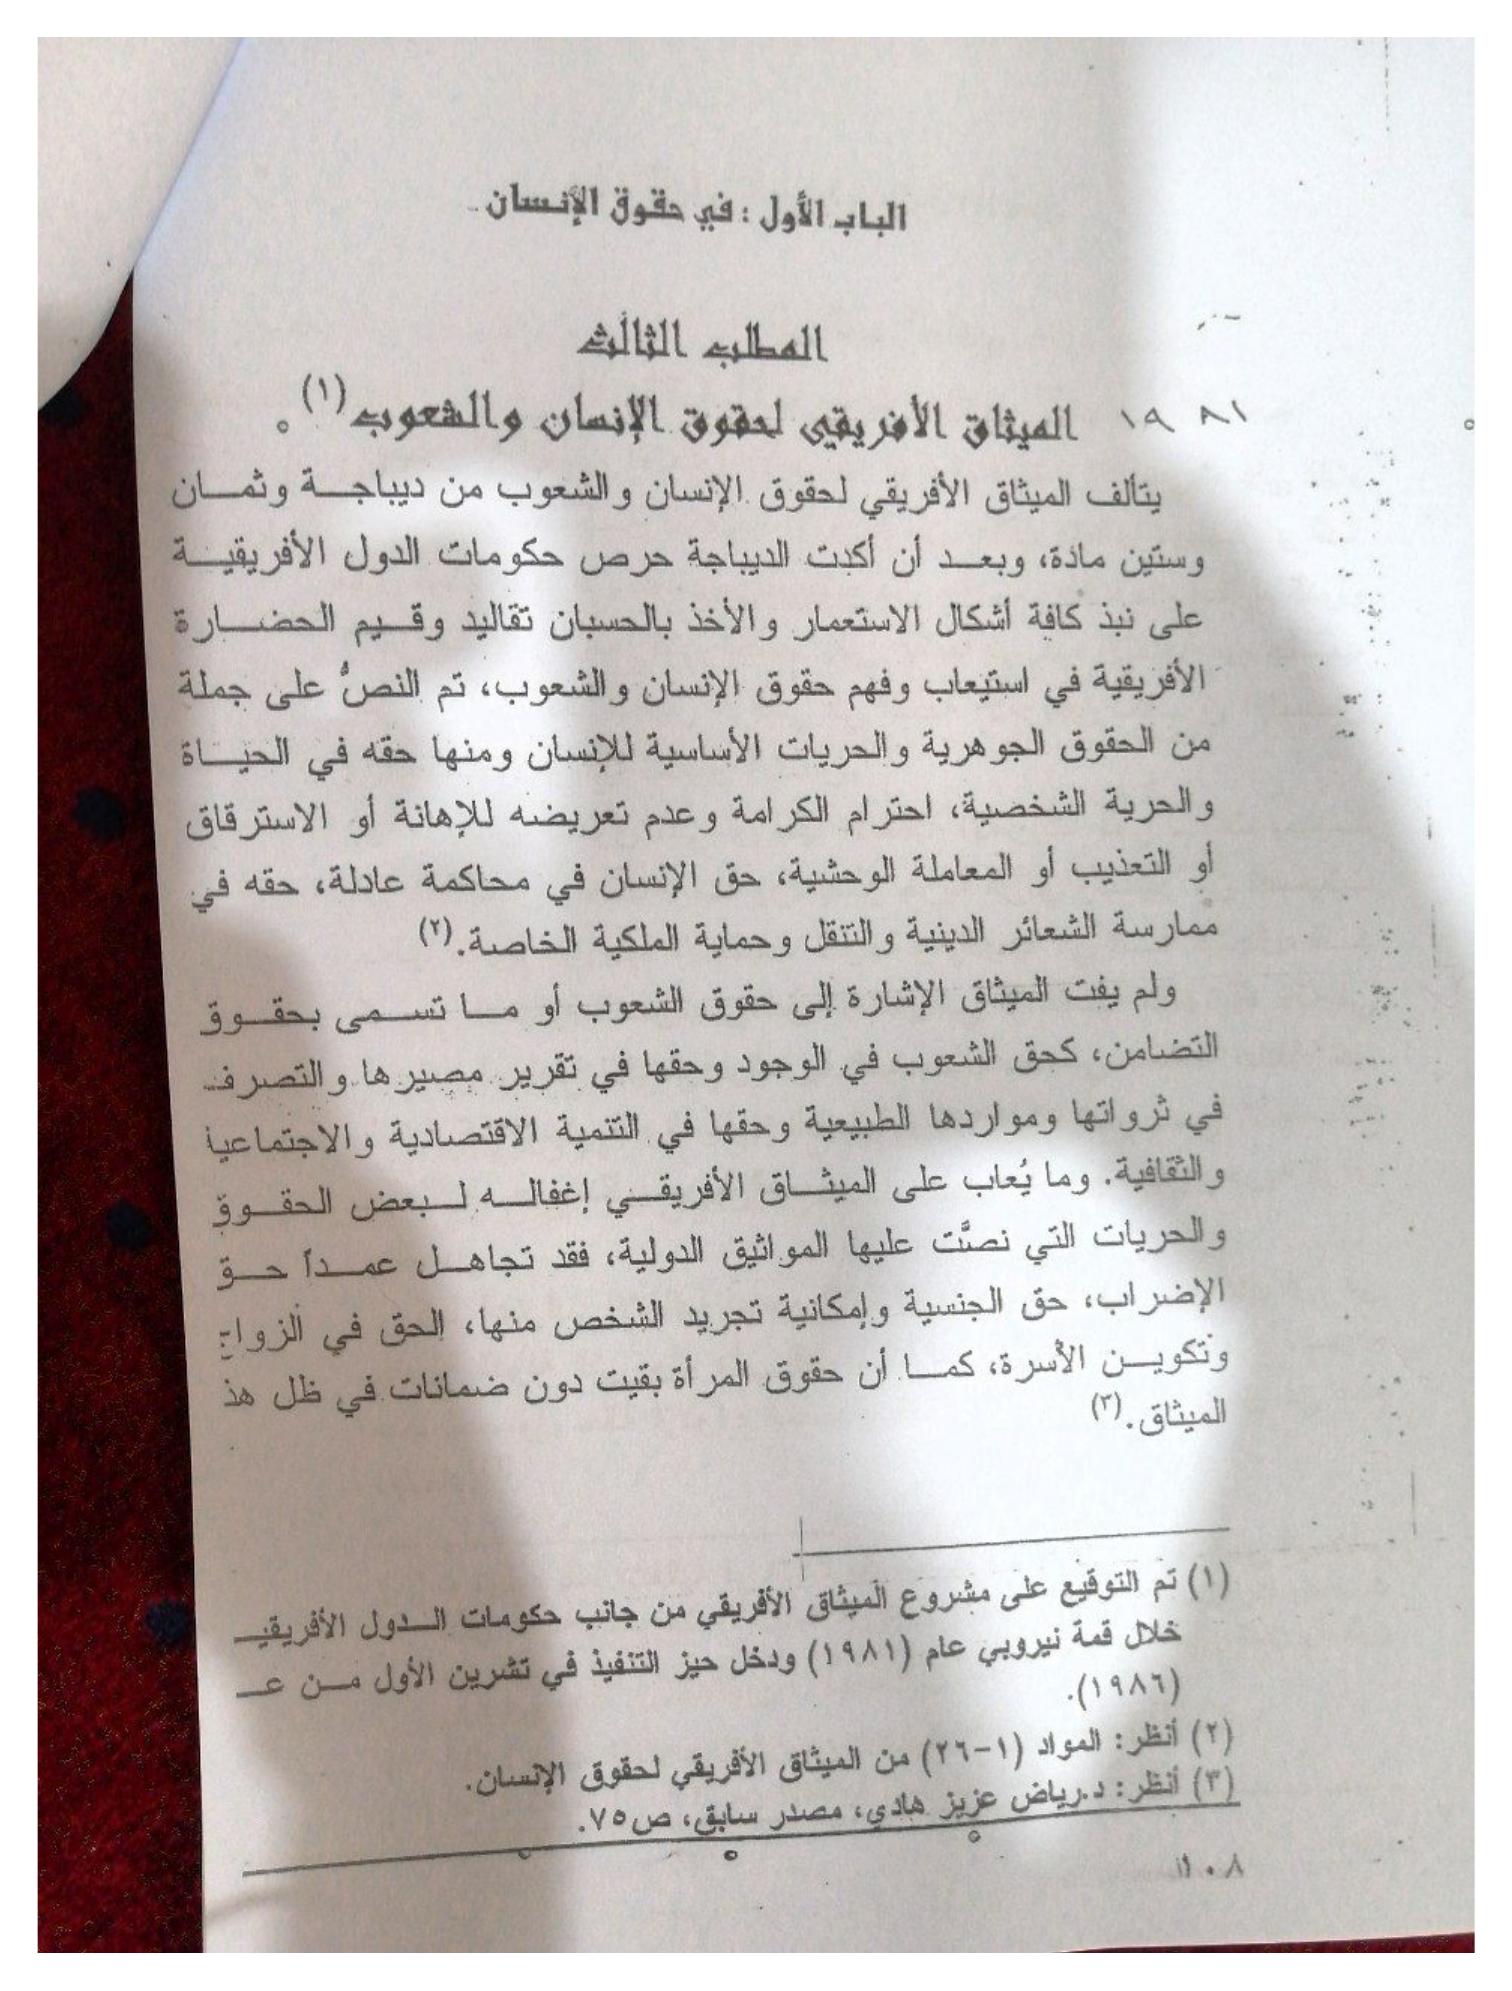 الباب الأول : في حقوق الإنسان
المطلب الثالث
١٩٨١ الميثاق الأفريقي لحقوق الإنسان والشعوب (١)
يتألف الميثاق الأفريقي لحقوق الإنسان والشعوب من ديباجة وثمان
وستين مادة، وبعد أن أكدت الديباجة حرص حكومات الدول الأفريقية
على نبذ كافة أشكال الاستعمار والأخذ بالحسبان تقاليد وقيم الحضارة
الأفريقية في استيعاب وفهم حقوق الإنسان والشعوب، تم النصُّ على جملة
من الحقوق الجوهرية والحريات الأساسية للإنسان ومنها حقه في الحياة
والحرية الشخصية، احترام الكرامة وعدم تعريضه للإهانة أو الاسترقاق
أو التعذيب أو المعاملة الوحشية، حق الإنسان في محاكمة عادلة، حقه في
ممارسة الشعائر الدينية والتنقل وحماية الملكية الخاصة.(٢)
ولم يفت الميثاق الإشارة إلى حقوق الشعوب أو ما تسمى بحقوق
التضامن، كحق الشعوب في الوجود وحقها في تقرير مصيرها والتصرف
في ثرواتها ومواردها الطبيعية وحقها في التنمية الاقتصادية والاجتماعية
والثقافية. وما يُعاب على الميثاق الأفريقي إغفاله لبعض الحقوق
والحريات التي نصَّت عليها المواثيق الدولية، فقد تجاهل عمداً حق
الإضراب، حق الجنسية وإمكانية تجريد الشخص منها، الحق في الزواج
وتكوين الأسرة، كما أن حقوق المرأة بقيت دون ضمانات في ظل هذ
الميثاق.(٣)
(١) تم التوقيع على مشروع الميثاق الأفريقي من جانب حكومات الدول الأفريقيـ
خلال قمة نيروبي عام (١٩٨١) ودخل حيز التنفيذ في تشرين الأول من عـ
(١٩٨٦).
(٢) أنظر: المواد (١-٢٦) من الميثاق الأفريقي لحقوق الإنسان.
(٣) أنظر: د.رياض عزيز هادي، مصدر سابق، ص٧٥.
١٠٨